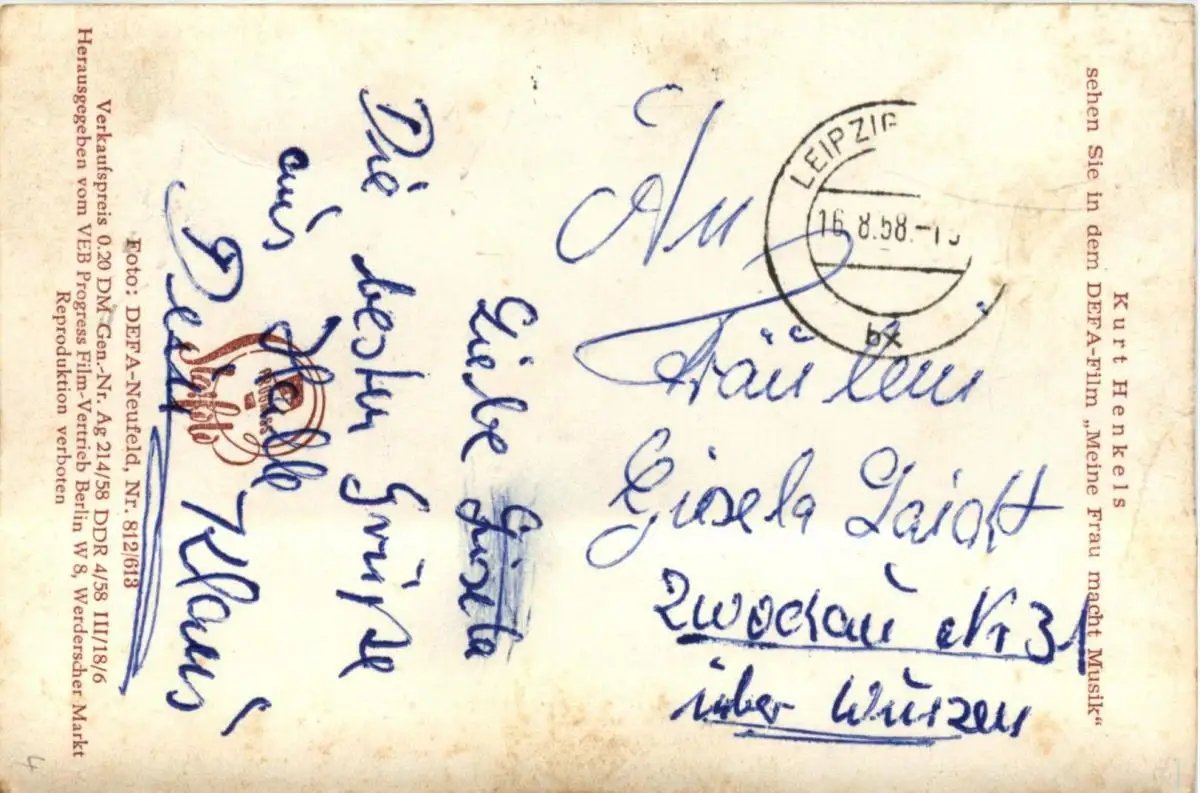 Kurt Henkels
sehen Sie in dem DEFA-Film „Meine Frau macht Musik“
Liebe Gisela
Die besten Grüße
aus Halle
Dein Klaus
PROGRESS
Starfoto
Foto: DEFA-Neufeld, Nr. 812/613
Verkaufspreis 0.20 DM Gen.-Nr. Ag 214/58 DDR 4/58 III/18/6
Herausgegeben vom VEB Progress Film-Vertrieb Berlin W 8, Werderscher Markt
Reproduktion verboten
LEIPZIG
16.8.58.-1
bx
An
Fräulein
Gisela
Zwochau Nr 31
über Wurzen
4